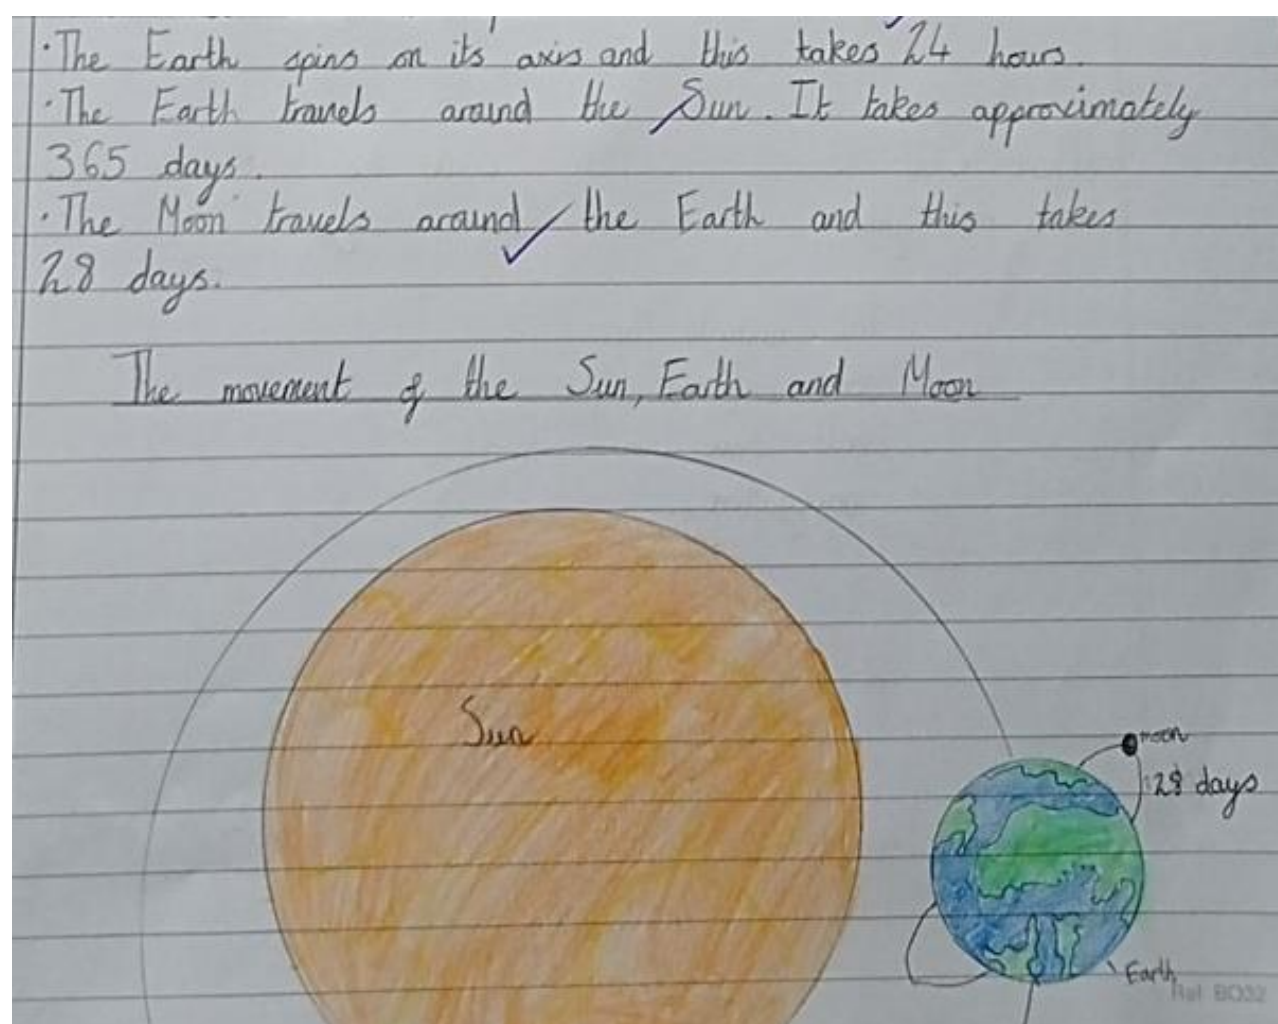 · The Earth spins on its axis and this takes 24 hours.
· The Earth travels around the Sun. It takes approximately
365 days.
· The Moon travels around the Earth and this takes
28 days.
The movement of the Sun, Earth and Moon
Sun
moon
28 days
Earth
Ref BO32